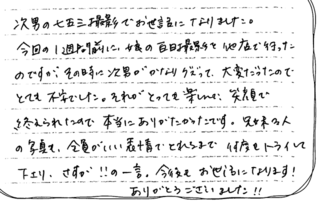 次男の七五三撮影でお世話になりました。
今回の1週間前に、妹の百日撮影を他店で行った
のですが、その時に次男がかなりぐずって、大変だったので
とても不安でした。それがとっても楽しんで、笑顔で
終えられたので本当にありがたかったです。兄妹3人
の写真も、全員がいい表情でとれるまで何度もトライして
下さり、さすが!!の一言。今後もお世話になります!
ありがとうございました!!